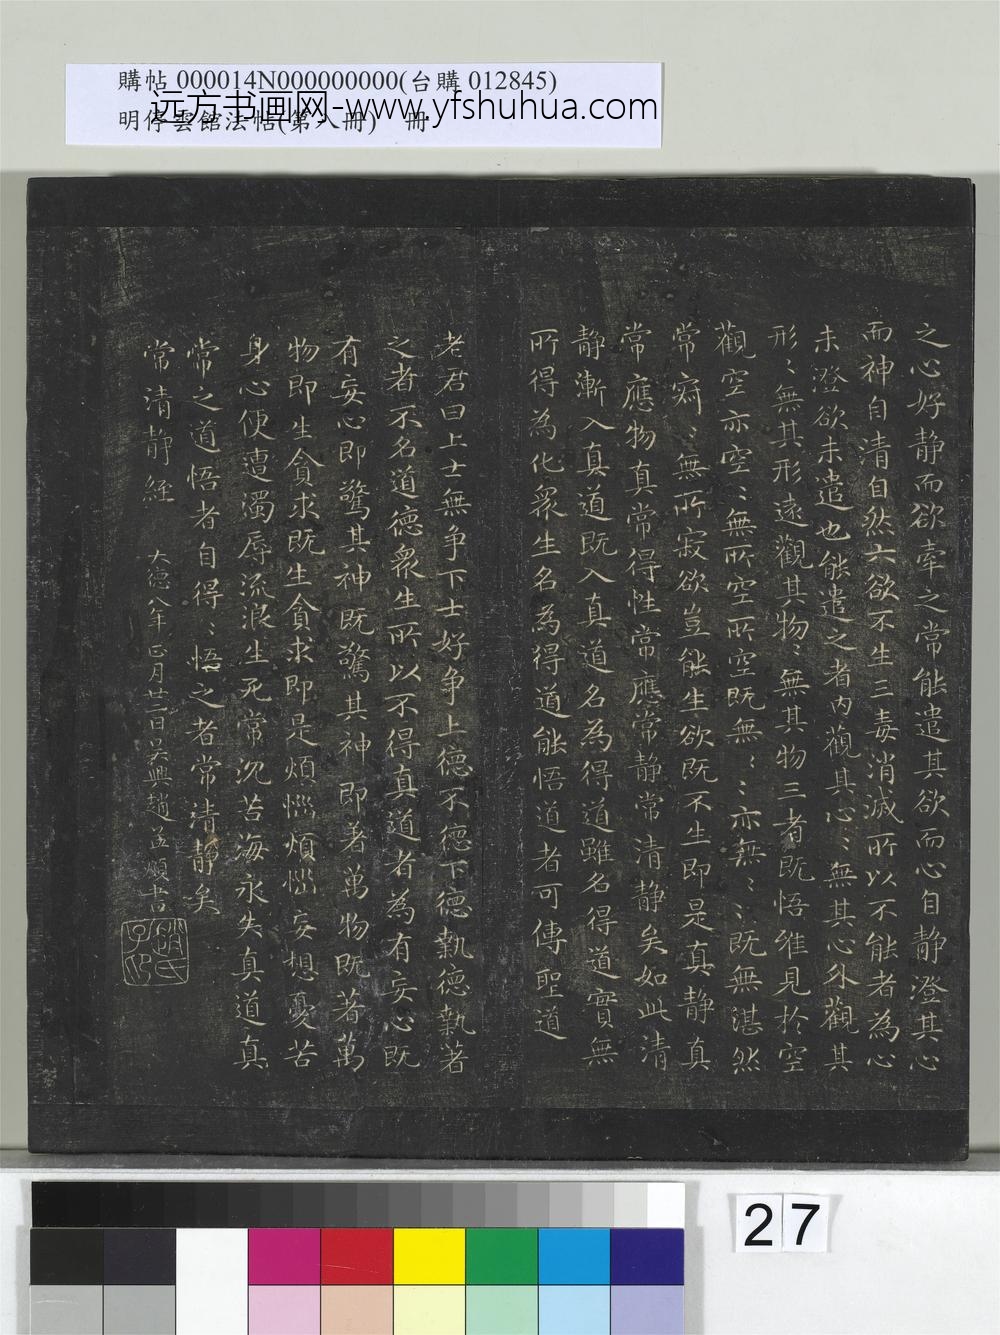 購帖 000014N000000000(台購 012845)
明停雲館法帖(第八冊) 冊
远方书画网-www.yfshuhua.com
之心好静而欲牽之常能遣其欲而心自静澄其心
而神自清自然六欲不生三毒消滅所以不能者為心
未澄欲未遣也能遣之者内觀其心〻無其心外觀其
形〻無其形遠觀其物〻無其物三者既悟唯見於空
觀空亦空〻無所空所空既無〻〻亦無〻〻既無湛然
常寂〻無所寂欲豈能生欲既不生即是真静真
常應物真常得性常應常静常清静矣如此清
静漸入真道既入真道名為得道雖名得道實無
所得為化衆生名為得道能悟道者可傳聖道
老君曰上士無争下士好争上德不德下德執德執著
之者不名道德衆生所以不得真道者為有妄心既
有妄心即驚其神既驚其神即著萬物既著萬
物即生貪求既生貪求即是煩惱煩惱妄想憂苦
身心便遭濁辱流浪生死常沉苦海永失真道真
常之道悟者自得〻悟之者常清静矣
常清静經 大德八年正月廿二日吴興趙孟頫書
趙氏子昂
27